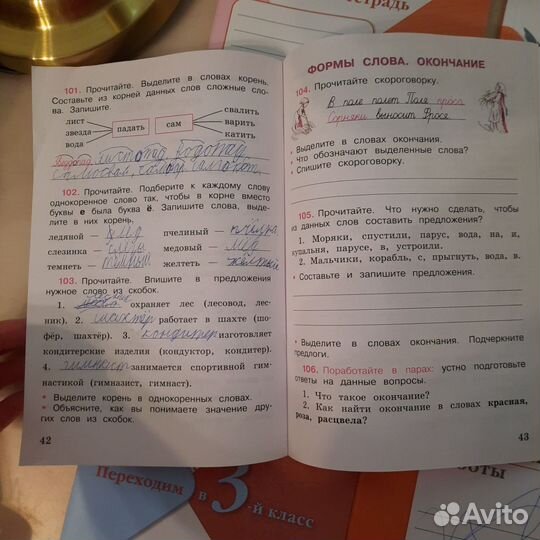 тетрадь
101. Прочитайте. Выделите в словах корень.
Составьте из корней данных слов сложные сло-
ва. Запишите.
лист
звезда
вода
падать
сам
свалить
варить
катить
листопад, водопад,
самосвал, самовар, самокат.
102. Прочитайте. Подберите к каждому слову
однокоренное слово так, чтобы в корне вместо
буквы е была буква ё. Запишите слова, выде-
лите в них корень.
ледяной — лёд пчелиный — пчёлка
слезинка — слёзы медовый — мёд
темнеть — тёмный желтеть — жёлтый
103. Прочитайте. Впишите в предложения
нужное слово из скобок.
1. лесник охраняет лес (лесовод, лес-
ник). 2. шахтёр работает в шахте (шо-
фёр, шахтёр). 3. кондитер изготовляет
кондитерские изделия (кондуктор, кондитер).
4. гимнаст занимается спортивной гим-
настикой (гимназист, гимнаст).
• Выделите корень в однокоренных словах.
• Объясните, как вы понимаете значение дру-
гих слов из скобок.
42
ФОРМЫ СЛОВА. ОКОНЧАНИЕ
104. Прочитайте скороговорку.
В поле полет Поля просо,
Сорняки выносит Фрося.
• Выделите в словах окончания.
• Что обозначают выделенные слова?
• Спишите скороговорку.
105. Прочитайте. Что нужно сделать, чтобы
из данных слов составить предложения?
1. Моряки, спустили, парус, вода, на, и,
купальня, парусе, в, устроили.
2. Мальчики, корабль, с, прыгнуть, вода, в.
• Составьте и запишите предложения.
• Выделите в словах окончания. Подчеркните
предлоги.
106. Поработайте в парах: устно подготовьте
ответы на данные вопросы.
1. Что такое окончание?
2. Как найти окончание в словах красная,
роза, расцвела?
43
Переходим в 3-й класс
боты
Avito